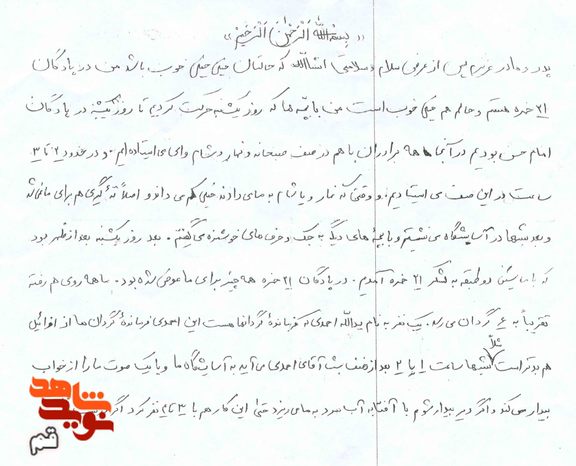 «بِسْمِ اللهِ الرَّحْمنِ الرَّحِیْمْ»
پدر و مادر عزیزم پس از عرض سلام و سلامتی انشاالله که حالتان خیلی خیلی خوب باشد من در پادگان
۲۱ حمزه هستم و حالم هم خیلی خوب است من با بچه ها که روز یکشنبه حرکت کردیم تا روز یکشنبه در پادگان
امام حسن بودیم در آنجا همه برادران با هم در صف صبحانه و نهار و شام وای می ایستاده ایم. و در حدود ۲ تا ۳
ساعت در این صف می ایستادیم. و وقتی که نهار و یا شام به ما می دادند خیلی کم می داد و اصلاً ته گیری هم برای ما نمی شد
و بعد شبها در آسایشگاه می نشستیم و با بچه های دیگر به جک و حرف های خوشمزه می گفتیم. بعد روز یکشنبه بعد از ظهر بود
که با ماشین دو طبقه به لشگر ۲۱ حمزه آمدیم. در پادگان ۲۱ حمزه همه چیز برای ما عوض شده بود. ما همه روی هم رفته
تقریباً به ۶ گردان می رسد. یک نفر به نام یدالله احمدی که فرمانده گردانها هست این احمدی فرمانده گردان ما از افرائیل
هم بدتر است مثلاً شبها ساعت ۱ یا ۲ بعد از نصف شب آقای احمدی می آید به آسایشگاه ما و با یک صوت ما را از خواب
بیدار می کند و اگر دیر بیدار شوم با آفتابه آب سرد به ما می ریزد حتی این کار هم با ۳ تا ۴ نفر کرد اگر
شاهد
نوید
قم